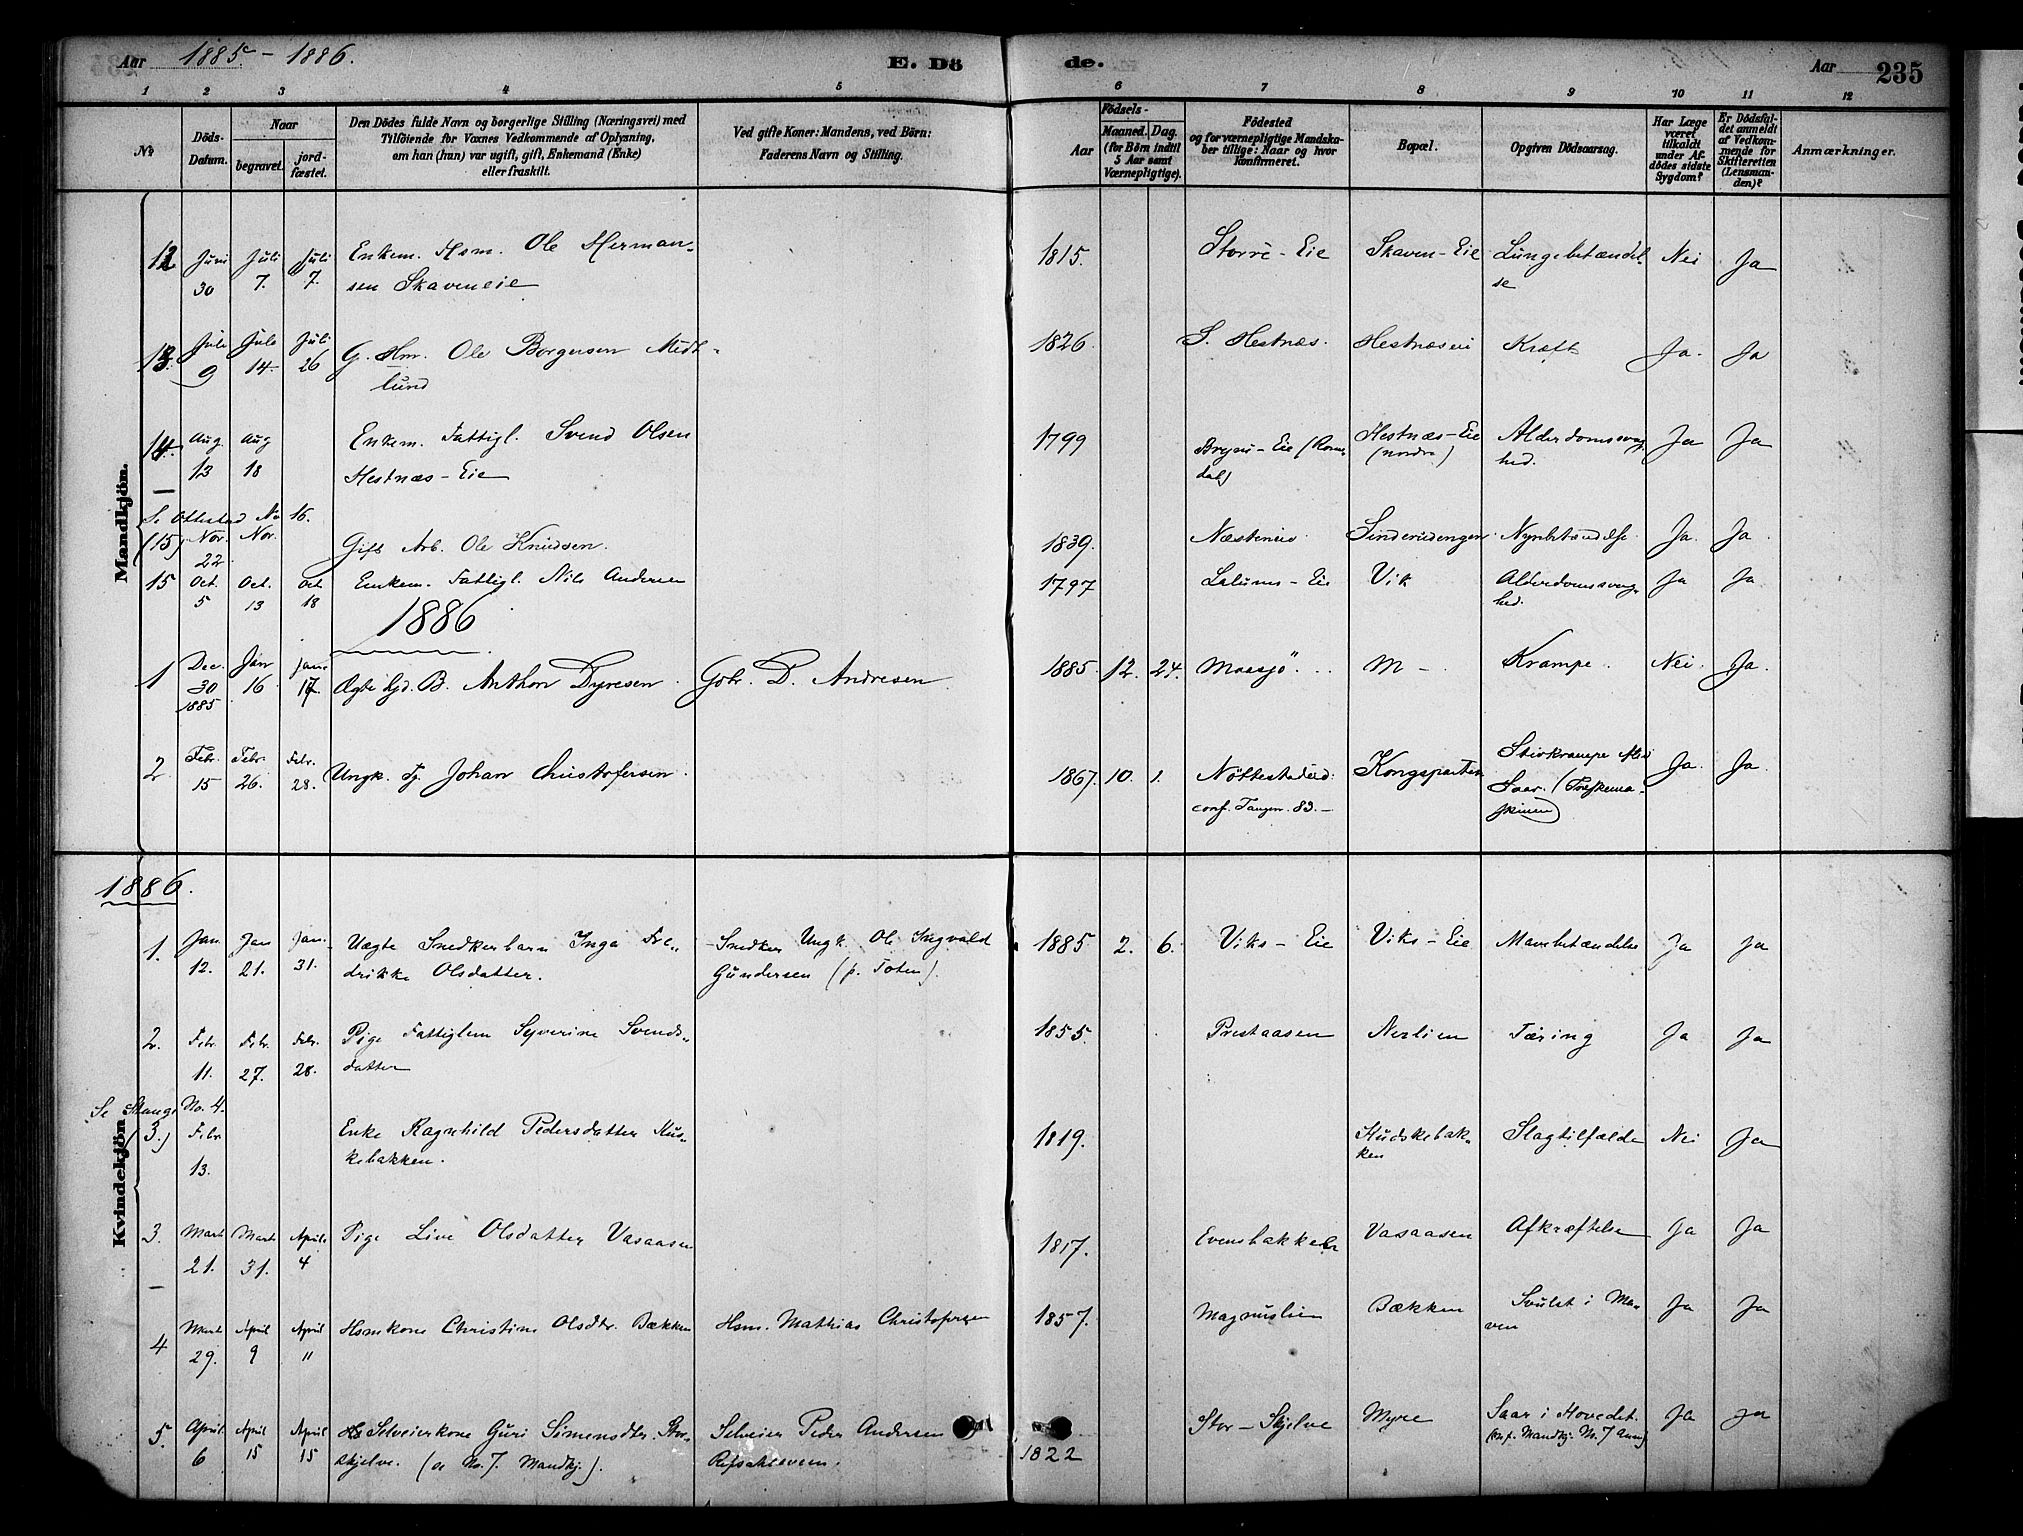 Aar 1885 - 1886.
E. Dö
de.
Aar
235
1 2 3 4 5
6 7 8 9 10 11 12
No
Döds-Datum.
Naar
begravet.
jord-fæstet.
Den Dödes fulde Navn og borgerlige Stilling (Næringsvei) med
Tilföiende for Voxnes Vedkommende af Oplysning,
om han (hun) var ugift, gift, Enkemand (Enke)
eller fraskilt.
Ved gifte Koner: Mandens, ved Börn:
Faderens Navn og Stilling.
Födsels-
Aar
Maaned. Dag.
(for Börn indtil
5 Aar samt
Værnepligtige).
Födested
og for værnepligtige Mandska-
ber tillige: Naar og hvor
konfirmeret.
Bopæl.
Opgiven Dödsaarsag.
Har Læge
været
tilkaldt
under Af-
dödes sidste
Sygdom?
Er Dödsfal-
det anmeldt
af Vedkom-
mende for
Skifteretten
(Lensman-
den)?
Anmærkninger.
Mandkjön.
12 Juni 30 Juli 7. Juli 7. Enkem. Hsm. Ole Herman-
sen Skaveneie
1815. Storre-Eie Skaven-Eie Lungebetændel-
se Nei Ja
13 Juli 9 Juli 14. Juli 26 G. Hm. Ole Borgersen Midt-
lund
1826. S. Hestnæs. Hestnæseie Kræft Ja. Ja
14. Aug 13 Aug 18 Enkem. Fattigl. Svend Olsen
Hestnæs-Eie
1799 Bryni-Eie (Romsdal) Hestnæs-Eie (nordre) Alderdomssvag-
hed. Ja Ja
Se Ottestad No 16.
(15) Nov. 22 Nov. Gift Arb. Ole Knudsen.
1839. Sinderudengen Nyrebetændelse Ja. Ja.
15 Oct. 5 Oct. 13 Oct 18 Enkem. Fattigl. Nils Andersen
1797 Lalums-Eie Vik Alderdomssvag-
hed. Ja Ja
1886
1 Dec. 30 1885 Jan 16 Jan 17. Ægte Gjd. B. Anthon Dyresen. Gbr. D. Andresen.
1885. 12. 24. Maasjö. M-. Krampe. Nei. Ja.
2. Febr. 15 Febr. 26. Febr. 28. Ungk. Tj. Johan Christofersen.
1867. 10. 1. Nöttestadeid: Kongsparten Stivkrampe
conf. Tangen. 83.- Saar. (Træskema-
skinen) Ja. Ja.
1886.
Kvindekjön
1. Jan. 12. Jan 21. Jan. 31. Uægte Snedkerbarn Inga Fre-
drikke Olsdatter.
Snedker Ungk. Ole Ingvald
Gundersen (p. Toten).
1885 2. 6. Viks-Eie Viks-Eie Mavebetændelse Ja Ja
2. Febr. 11. Febr. 27. Febr. 28. Pige Fattiglem Syverine Svends-
datter
1855. Prestaasen Nerlien Tæring Ja Ja
Se Stange No. 4.
(3.) Febr 13. Enke Ragnhild Pedersdatter Kus-
kebakken.
1819. Kudskebak-
ken Slagtilfælde Nei Ja
3. Mart 21. Mart 31. April 4 Pige Live Olsdatter Vasaasen
1817. Evensbakken Vasaasen Afkræftelse Ja Ja
4 Mart 29. April 9 April 11 Hsmkone Christine Olsdtr. Bækken Hsm. Mathias Christofersen
1857. Magnuslien Bækken Svulst i Ma-
ven Ja Ja
5. April 6 April 15 April 15 Selveierkone Guri Simensdtr. Stor-
skjelve. (se No. 7. Mandkj.).
Selveier Peder Andersen
1822 Stor-Skjelve Myre Saar i Hovedet.
(conf. Mandkj. No. 7 Anm) Ja Ja